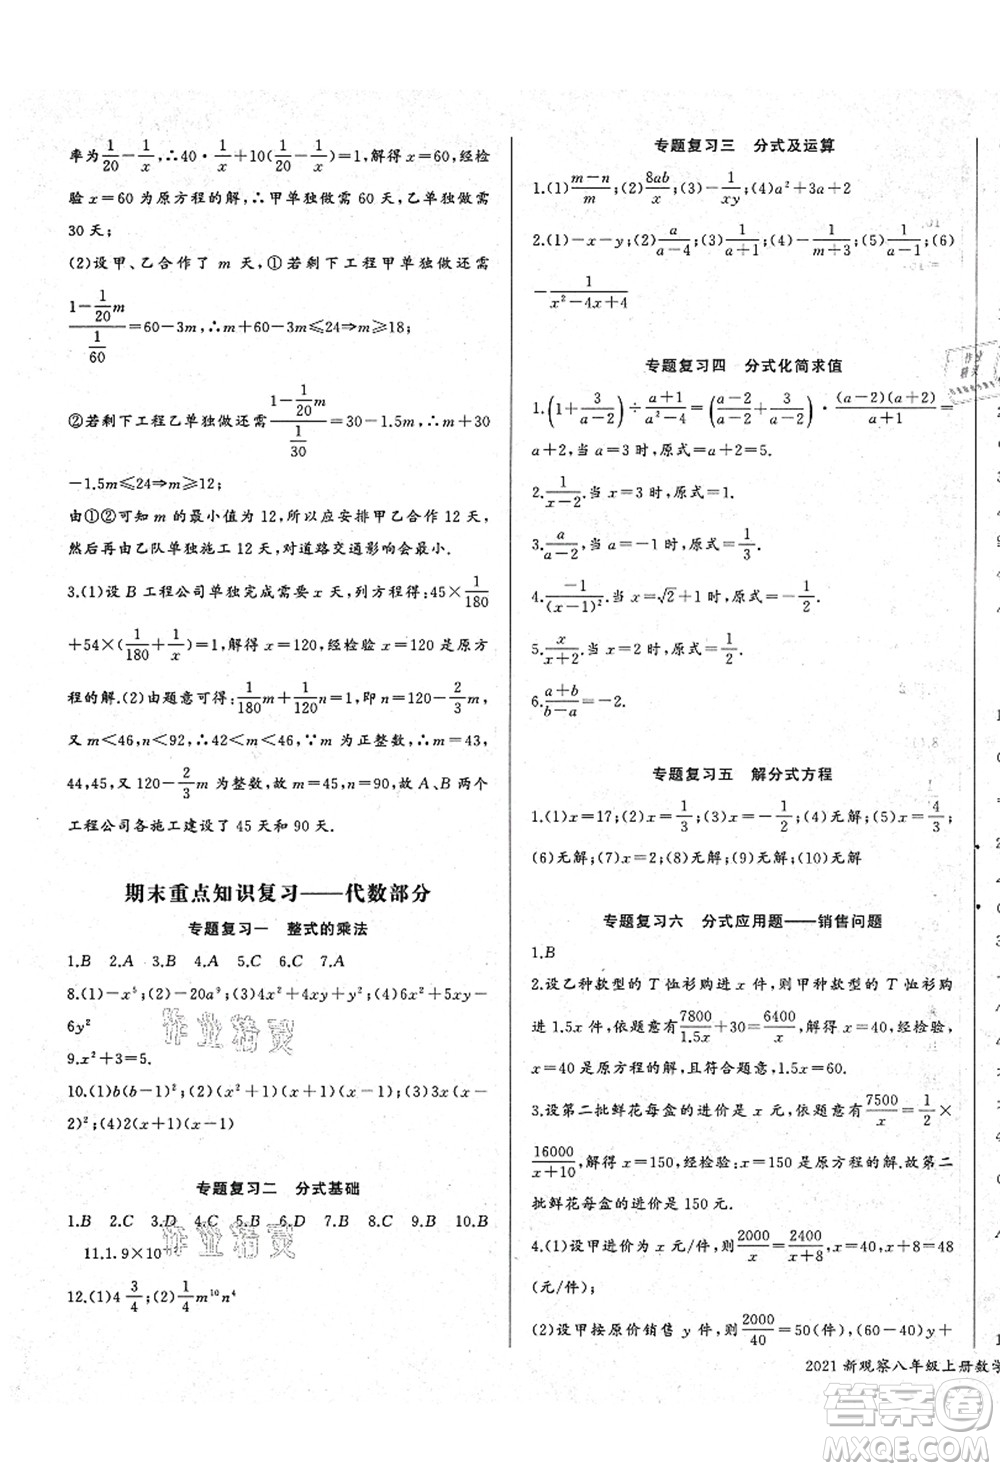 率为1/20－1/x,∴40·1/x＋10(1/20－1/x)＝1,解得x＝60,经检
验x＝60为原方程的解,∴甲单独做需60天,乙单独做需
30天;
(2)设甲、乙合作了m天,①若剩下工程甲单独做还需
(1－1/20 m)/(1/60)＝60－3m,∴m＋60－3m≤24⇒m≥18;
②若剩下工程乙单独做还需(1－1/20 m)/(1/30)＝30－1.5m,∴m＋30
－1.5m≤24⇒m≥12;
由①②可知m的最小值为12,所以应安排甲乙合作12天,
然后再由乙队单独施工12天,对道路交通影响会最小.
3.(1)设B工程公司单独完成需要x天,列方程得:45×1/180
＋54×(1/180＋1/x)＝1,解得x＝120,经检验x＝120是原方
程的解.(2)由题意可得:1/180 m＋1/120 n＝1,即n＝120－2/3 m,
又m＜46,n＜92,∴42＜m＜46,∵m为正整数,故m＝43,
44,45,又120－2/3 m为整数,故m＝45,n＝90,故A、B两个
工程公司各施工建设了45天和90天.
期末重点知识复习——代数部分
专题复习一 整式的乘法
1.B 2.A 3.B 4.A 5.C 6.C 7.A
8.(1)－x⁵;(2)－20a⁹;(3)4x²＋4xy＋y²;(4)6x²＋5xy－
6y²
9.x²＋3＝5.
10.(1)b(b－1)²;(2)(x²＋1)(x＋1)(x－1);(3)3x(x－
2)²;(4)2(x＋1)(x－1)
专题复习二 分式基础
1.B 2.C 3.D 4.C 5.D 6.B 7.B 8.C 9.B 10.B
11.1.9×10
12.(1)4 3/4;(2)1/4 m¹⁰n⁴
专题复习三 分式及运算
1.(1)(m－n)/m;(2)8ab/x;(3)－1/xy;(4)a²＋3a＋2
2.(1)－x－y;(2)a/(a－4);(3)1/(a＋1);(4)1/(m＋3);(5)1/(a＋1);(6)
－1/(x²－4x＋4)
专题复习四 分式化简求值
1.(1＋3/(a－2))÷(a＋1)/(a²－4)＝((a－2)/(a－2)＋3/(a－2))·(a－2)(a＋2)/(a＋1)＝
a＋2,当a＝3时,原式＝a＋2＝5.
2.1/(x－2).当x＝3时,原式＝1.
3.a/(a－2),当a＝－1时,原式＝1/3.
4.－1/(x－1)².当x＝√2＋1时,原式＝－1/2.
5.x/(x＋2).当x＝2时,原式＝1/2.
6.(a＋b)/(b－a)＝－2.
专题复习五 解分式方程
1.(1)x＝17;(2)x＝1/3;(3)x＝－1/2;(4)无解;(5)x＝4/3;
(6)无解;(7)x＝2;(8)无解
专题复习六 分式应用题——销售问题
1.B
2.设乙种款型的T恤衫购进x件,则甲种款型的T恤衫购
进1.5x件,依题意有7800/1.5x＋30＝6400/x,解得x＝40,经检验,
x＝40是原方程的解,且符合题意,1.5x＝60.
3.设第二批鲜花每盒的进价是x元,依题意有7500/x＝1/2×
16000/(x＋10),解得x＝150,经检验:x＝150是原方程的解.故第二
批鲜花每盒的进价是150元.
4.(1)设甲进价为x元/件,则2000/x＝2400/(x＋8),x＝40,x＋8＝48
(元/件);
(2)设甲按原价销售y件,则2000/40＝50(件),(60－40)y＋
2021 新观察八年级上册数学
作业精灵
作业精灵
答案圈
MXQE.COM